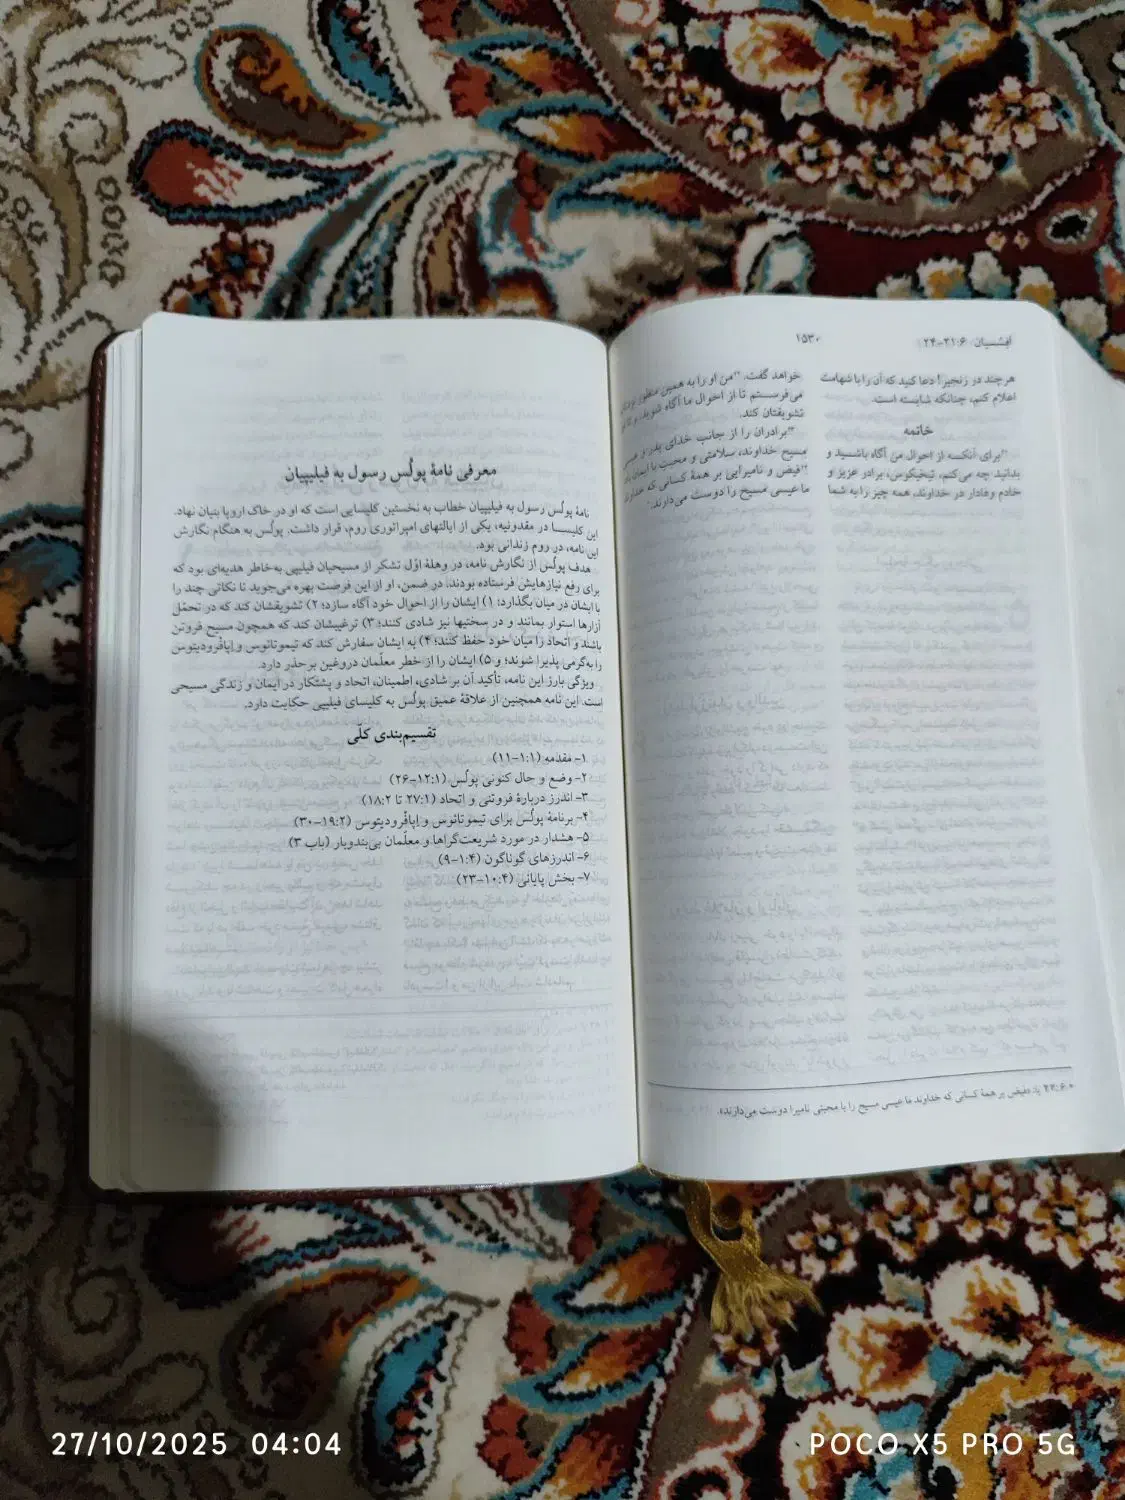 اَفِسُسیان ۶:‏۲۱-۲۴
۱۵۳۰
هر چند در زنجیر! دعا کنید که آن را با شهامت
اعلام کنم، چنانکه شایسته است.
خاتمه
۲۱برای آنکه از احوال من آگاه باشید و
بدانید چه می‌کنم، تیخیکوس، برادر عزیز و
خادم وفادار در خداوند، همه چیز را به شما
خواهد گفت. ۲۲من او را به همین منظور نزدتان
می‌فرستم تا از احوال ما آگاه شوید، و تا او
تشویقتان کند.
۲۳برادران را از جانب خدای پدر و عیسی
مسیح خداوند، سلامتی و محبت با ایمان باد.
۲۴فیض و نامیرایی بر همۀ کسانی که خداوند
ما عیسی مسیح را دوست می‌دارند.*
* ۶:‏۲۴ یا: «فیض بر همۀ کسانی که خداوند ما عیسی مسیح را با محبتی نامیرا دوست می‌دارند».
معرفی نامۀ پولُس رسول به فیلیپیان
نامۀ پولُس رسول به فیلیپیان خطاب به نخستین کلیسایی است که او در خاک اروپا بنیان نهاد.
این کلیسا در مقدونیه، یکی از ایالتهای امپراتوری روم، قرار داشت. پولُس به هنگام نگارش
این نامه، در روم زندانی بود.
هدف پولُس از نگارش نامه، در وهلۀ اوّل تشکر از مسیحیان فیلیپی به‌خاطر هدیه‌ای بود که
برای رفع نیازهایش فرستاده بودند. در ضمن، او از این فرصت بهره می‌جوید تا نکاتی چند را
با ایشان در میان بگذارد: ۱) ایشان را از احوال خود آگاه سازد؛ ۲) تشویقشان کند که در تحمّل
آزارها استوار بمانند و در سختیها نیز شادی کنند؛ ۳) ترغیبشان کند که همچون مسیح فروتن
باشند و اتحاد را میان خود حفظ کنند؛ ۴) به ایشان سفارش کند که تیموتائوس و اِپافْرودیتوس
را به‌گرمی پذیرا شوند؛ و ۵) ایشان را از خطر معلّمان دروغین برحذر دارد.
ویژگی بارز این نامه، تأکید آن بر شادی، اطمینان، اتحاد و پشتکار در ایمان و زندگی مسیحی
است. این نامه همچنین از علاقۀ عمیق پولُس به کلیسای فیلیپی حکایت دارد.
تقسیم‌بندی کلّی
۱- مقدمه (۱:‏۱-۱۱)
۲- وضع و حال کنونی پولُس (۱:‏۱۲-۲۶)
۳- اندرز دربارۀ فروتنی و اتحاد (۱:‏۲۷ تا ۲:‏۱۸)
۴- برنامۀ پولُس برای تیموتائوس و اِپافْرودیتوس (۲:‏۱۹-۳۰)
۵- هشدار در مورد شریعت‌گراها و معلّمان بی‌بندوبار (باب ۳)
۶- اندرزهای گوناگون (۴:‏۱-۹)
۷- بخش پایانی (۴:‏۱۰-۲۳)
27/10/2025 04:04
POCO X5 PRO 5G